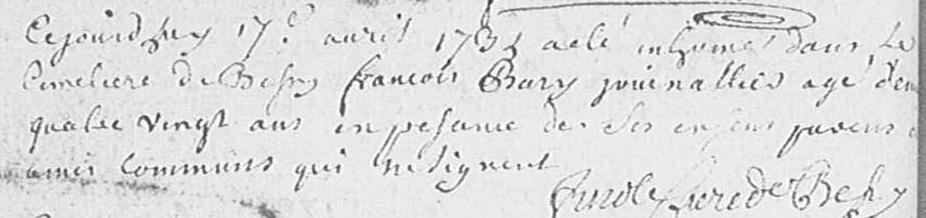 Cejourdhuy 17e. avril 1731 a eté inhumé dans le
Cimetiere de Bessy francois Bary journallier agé d'en
quatre vingt ans en presance de ses enfens parens
amis communs qui ne signent
curé de Bessy